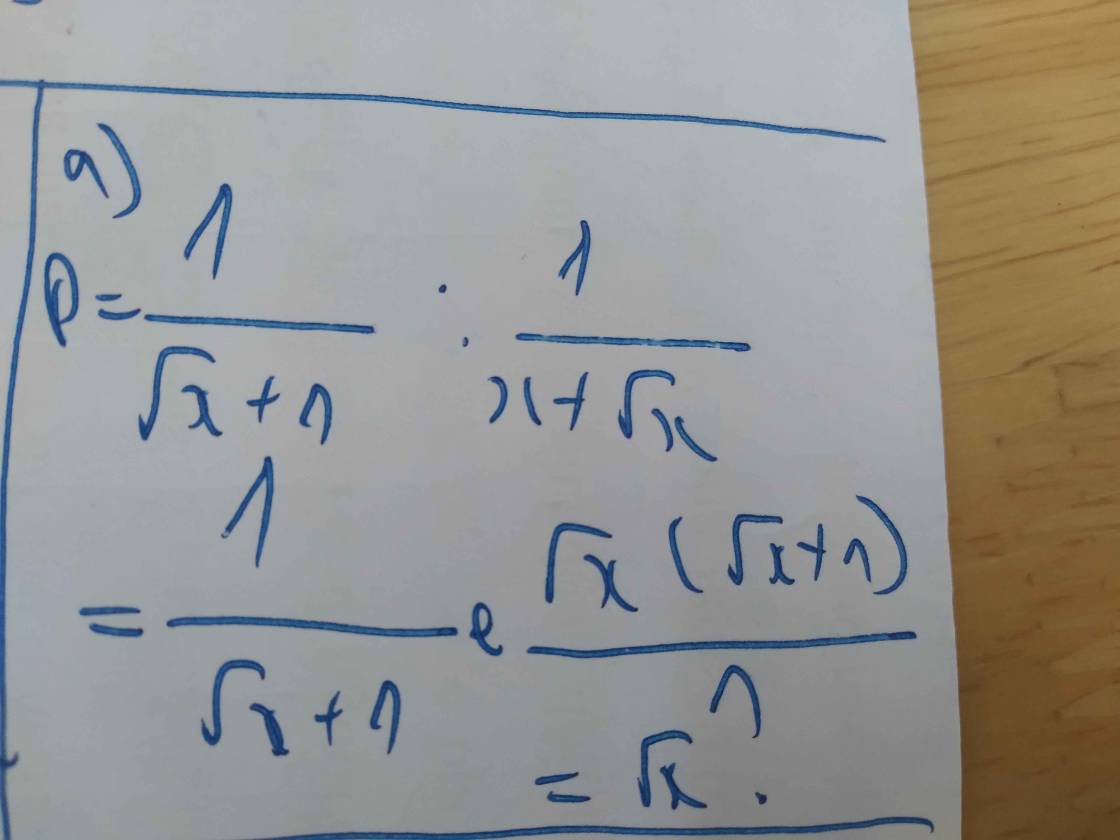 a)
P = 1/(√x + 1) : 1/(x + √x)
= 1/(√x + 1) • √x(√x + 1)/1
= √x.